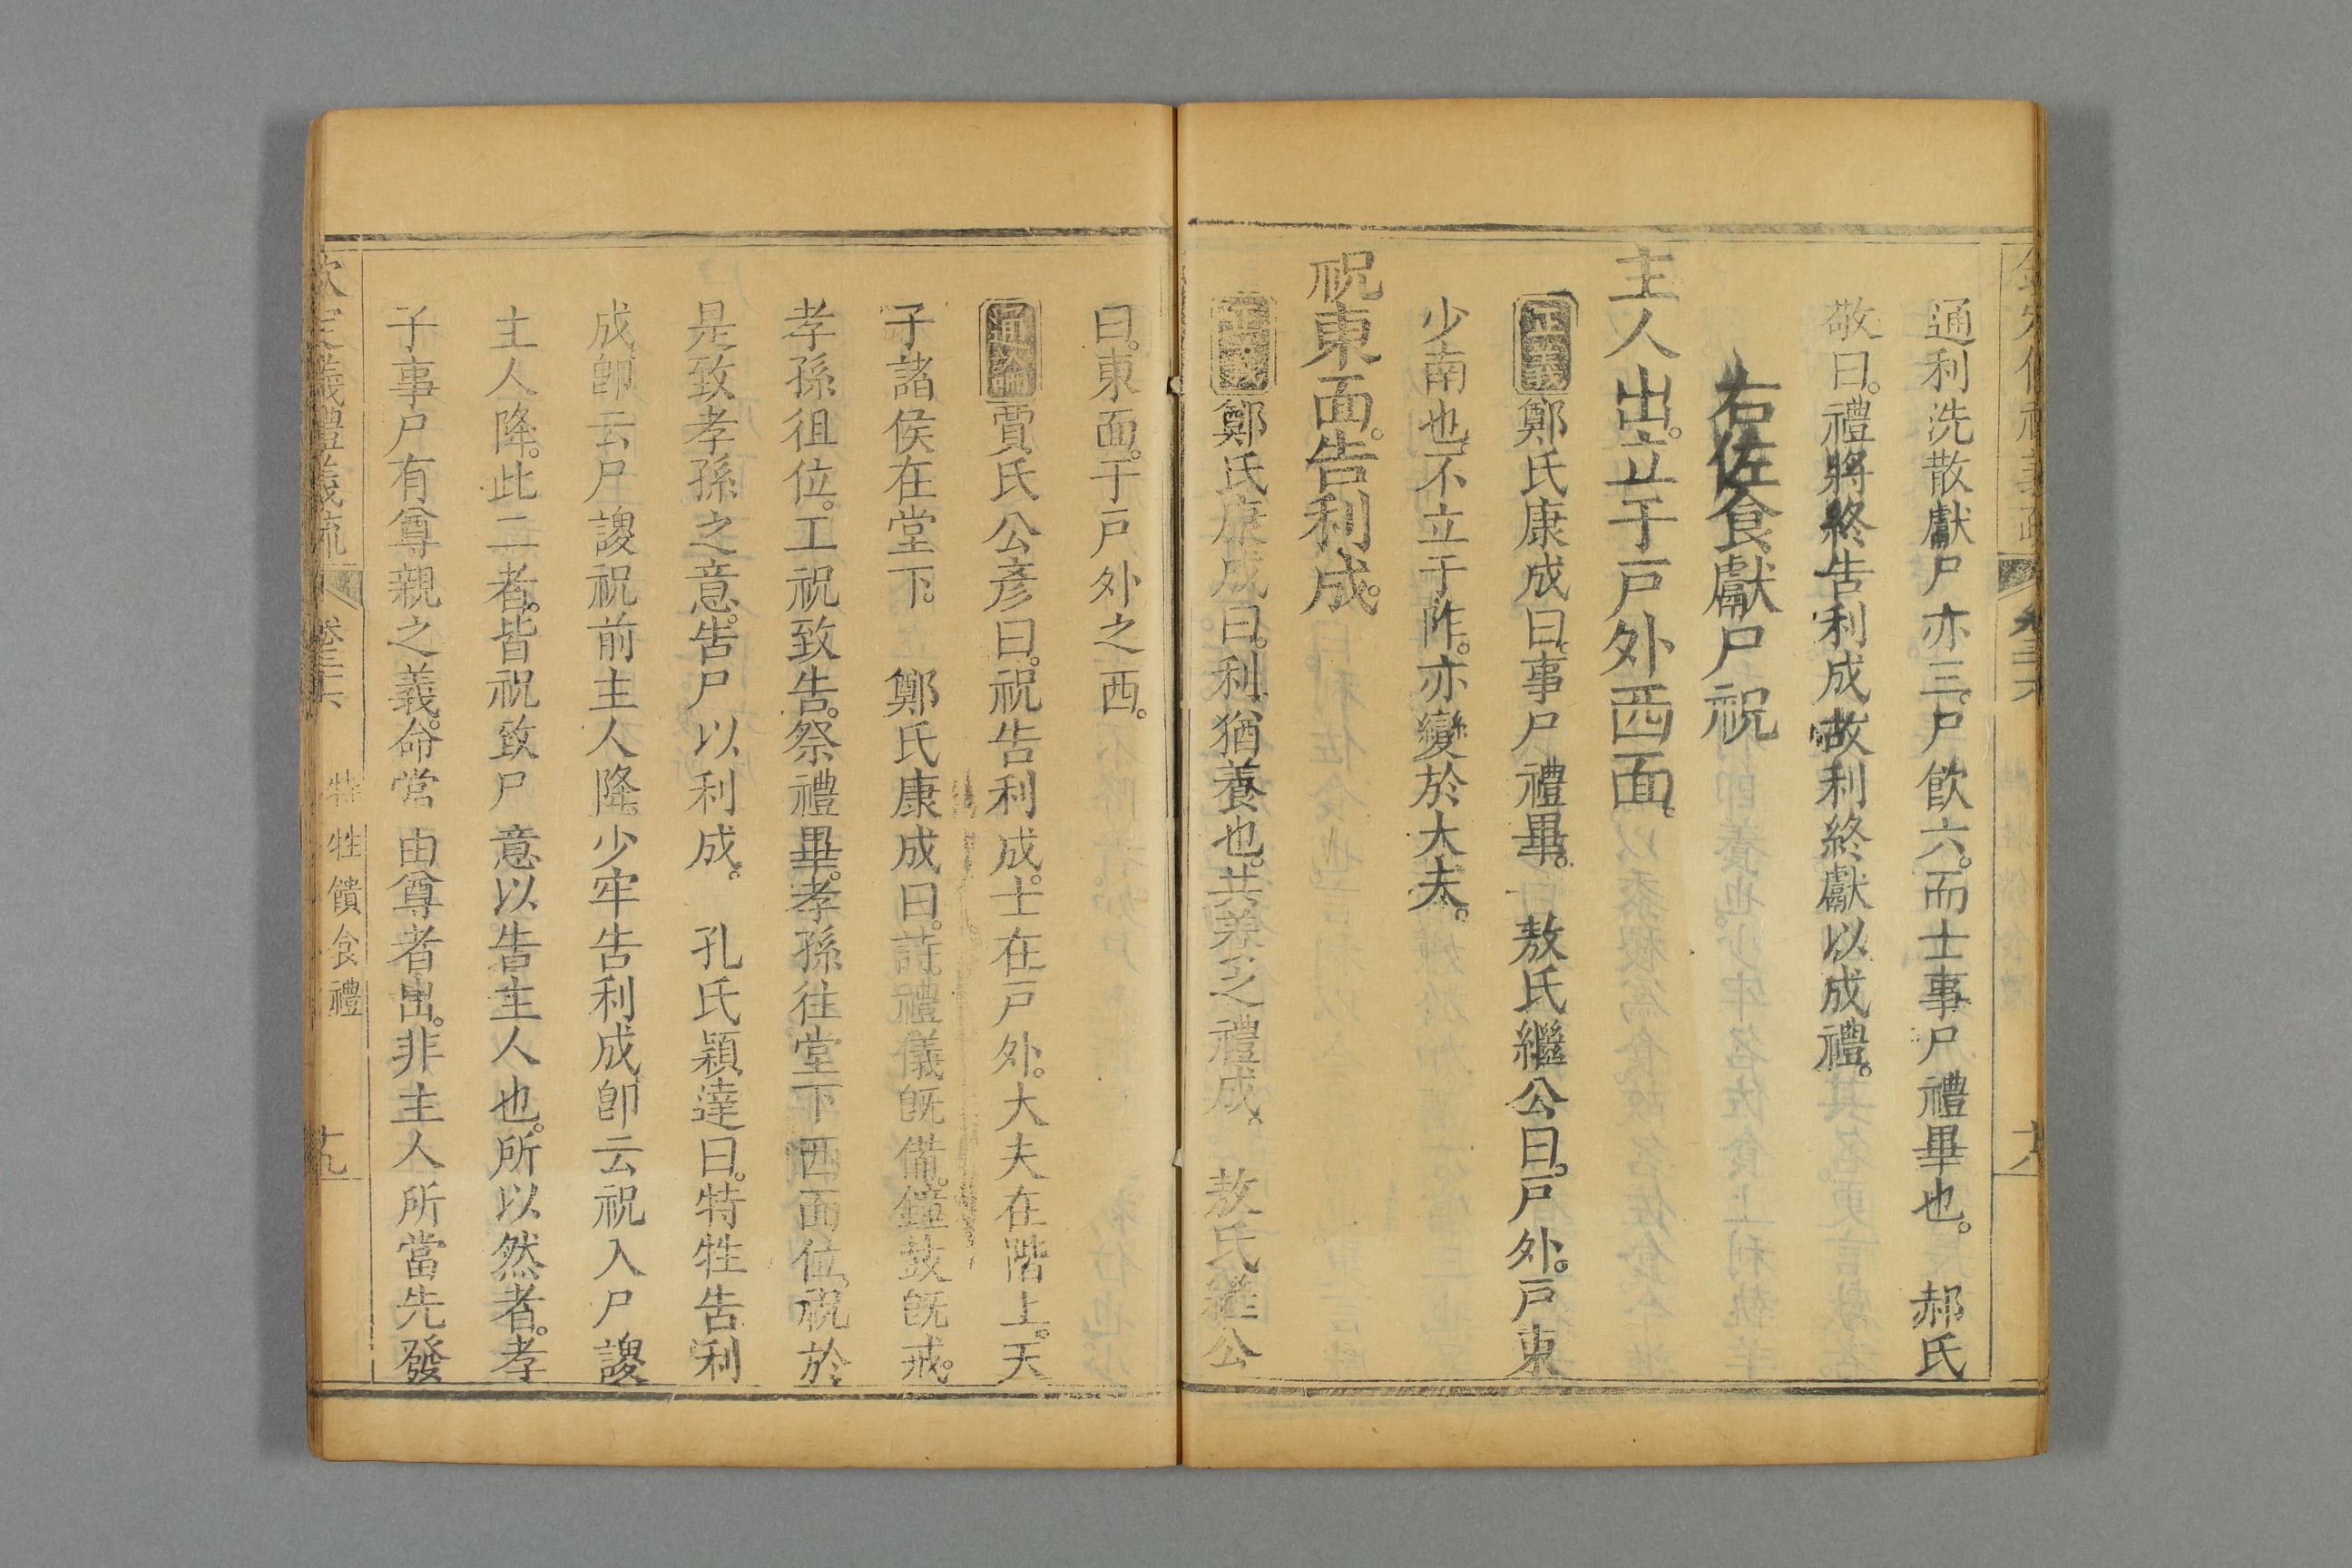 通利洗散獻尸亦三。尸飲六。而士事尸禮畢也。 郝氏
敬曰。禮將終告利成。故利終獻以成禮。
右佐食獻尸祝
主人出。立于戸外西面。
正義 鄭氏康成曰。事尸禮畢。 敖氏繼公曰。戸外。戸東
少南也。不立于阼。亦變於大夫。
祝東面。告利成。
正義 鄭氏康成曰。利。猶養也。共養之禮成。 敖氏繼公
曰。東面。于戸外之西。
通論 賈氏公彥曰。祝告利成。士在戸外。大夫在階上。天
子諸侯在堂下。 鄭氏康成曰。詩。禮儀旣備。鐘鼓旣戒。
孝孫徂位。工祝致告。祭禮畢。孝孫往堂下西面位。祝於
是致孝孫之意。告尸以利成。 孔氏穎達曰。特牲告利
成卽云尸謖祝前主人降。少牢告利成卽云祝入尸謖
主人降。此二者。皆祝致尸意以告主人也。所以然者。孝
子事尸有尊親之義。命當由尊者出。非主人所當先發
欽定儀禮義疏 卷三十六 特牲饋食禮 十九